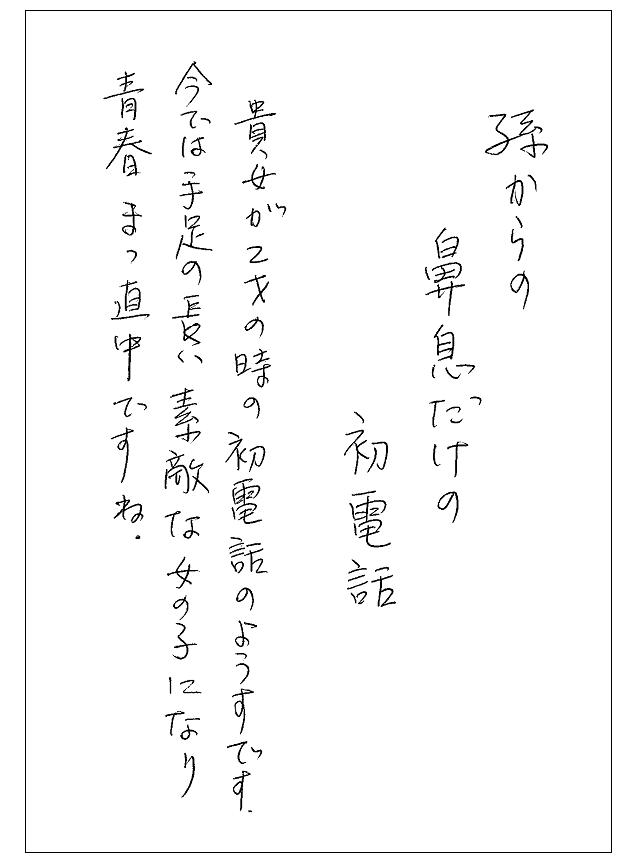 孫からの
鼻息だけの
初電話
貴女が2才の時の初電話のようすです.
今では手足の長い素敵な女の子になり
青春まっ直中ですね.